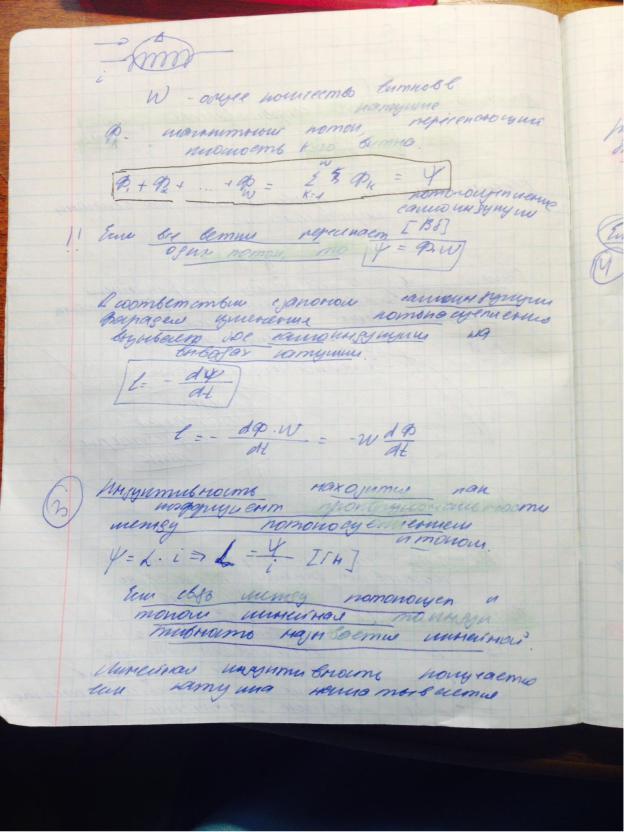 i
W - общее количество витков в
катушке
Фк - магнитный поток, пересекающий
плоскость к-го витка.
Ф₁ + Ф₂ + ... + Фw = Σ Фк = Ψ
K=1
потокосцепление
самоиндукции
[Вб]
!! Если все витки пересекает
один поток, то Ψ = Ф·W
В соответствии с законом самоиндукции
изменения потокосцепления
ЭДС самоиндукции на
выводах катушки.
e = - dΨ/dt
e = - dФ·W/dt = -W dФ/dt
3 Индуктивность находится как
коэффициент пропорциональности
между потокосцеплением
и током.
Ψ = L · i ⇒ L = Ψ/i [Гн]
Если связь между потокосцеп и
током линейная, то индук
тивность называется линейной.
Линейная индуктивность получается
если катушка наматывается
4